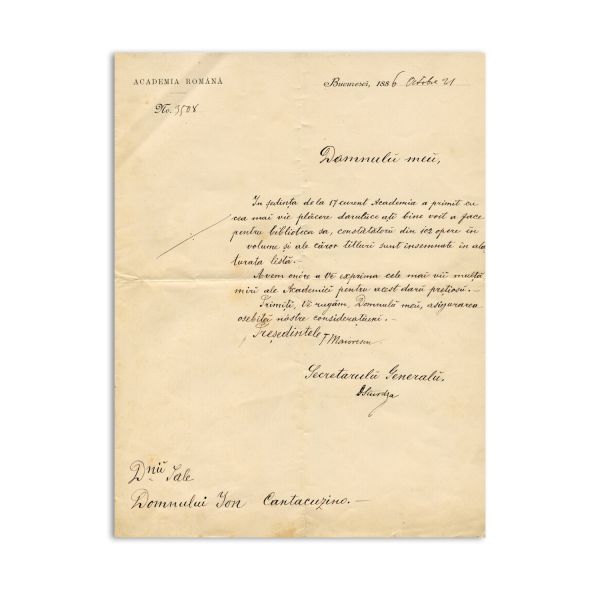 ACADEMIA ROMÂNĂ
No. 3508
Bucuresci, 1886 Octobre 21
Domnulŭ meŭ,
In ședința de la 17 curent Academia a primit cu
cea mai vie plăcere daru ce ați bine voit a face
pentru biblioteca sa, constătătorŭ din opere în
volume și ale căror titluri sunt insemnate in ală
turata listă.—
Avem onóre a Vĕ exprima cele mai vii mulță
miri ale Academieĭ pentru acest darŭ prețiosŭ.—
Primiți, Vĕ rugăm, Domnulŭ meŭ, asigurarea
osebiteĭ nóstre considerațiunĭ.—
Președintele T Maiorescu
Secretarulŭ Generalŭ.
DSturdza
Dniĭ Sale
Domnului Ion Cantacuzino.—